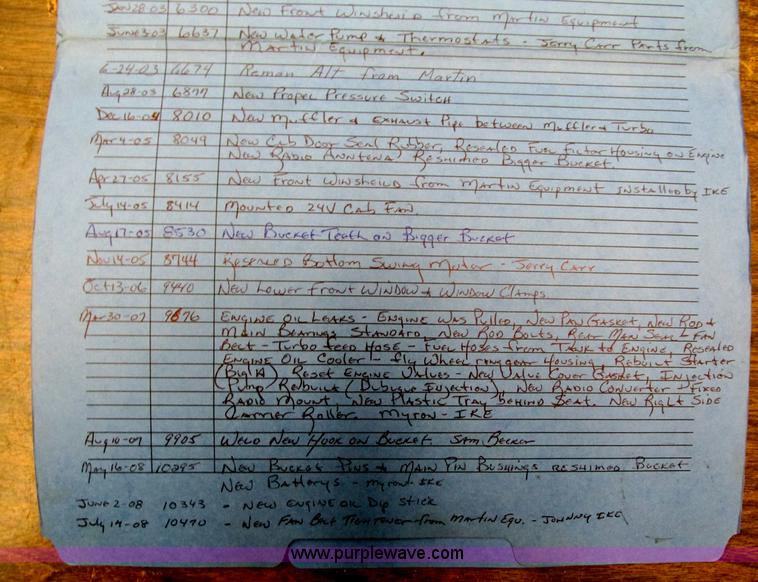 Jan 28-03 6300 New Front Winsheild from Martin Equipment
June 3-03 6637 New Water Pump & Thermostats - Jerry Carr Parts from
Martin Equipment.
6-24-03 6674 Reman Alt from Martin
Aug 28-03 6877 New Propel Pressure Switch
Dec 16-04 8010 New Muffler & Exhaust Pipe between Muffler & Turbo
Mar 4-05 8049 New Cab Door Seal Rubber, Resealed Fuel Filter Housing on Engine
New Radio Anntena, Reshimed Bigger Bucket.
Apr 27-05 8155 New Front Winsheild from Martin Equipment Installed by IKE
July 14-05 8414 Mounted 24V Cab Fan
Aug 17-05 8530 New Bucket Teeth on Bigger Bucket
Nov 14-05 8744 Resealed Bottom Swing Motor - Jerry Carr
Oct 13-06 9440 New Lower Front Window & Window Clamps
Mar 30-07 9676 Engine Oil Leaks - Engine was Pulled, New Pan Gasket, New Rod &
Main Bearings Standard, New Rod Bolts, Rear Main Seal - Fan
Belt - Turbo feed Hose - Fuel Hoses from Tank to Engine, Resealed
Engine Oil Cooler - Fly Wheel Housing, Rebuilt Starter
(Big A) Reset Engine Valves - New Valve Cover Gasket, Injection
Pump Rebuilt (Dubuque Injection) New Radio Converter - Fixed
Radio Mount, New Plastic Tray behind Seat, New Right Side
Carrier Roller. Myron - IKE
Aug 10-07 9905 Weld New Hook on Bucket Sam Becker
May 16-08 10295 New Bucket Pins & Main Pin Bushings reshimed Bucket
New Batterys - Myron IKE
June 2-08 10343 - New Engine Oil Dip Stick
July 14-08 10470 - New Fan Belt Tightener from Martin Equ. - Johnny IKE
www.purplewave.com